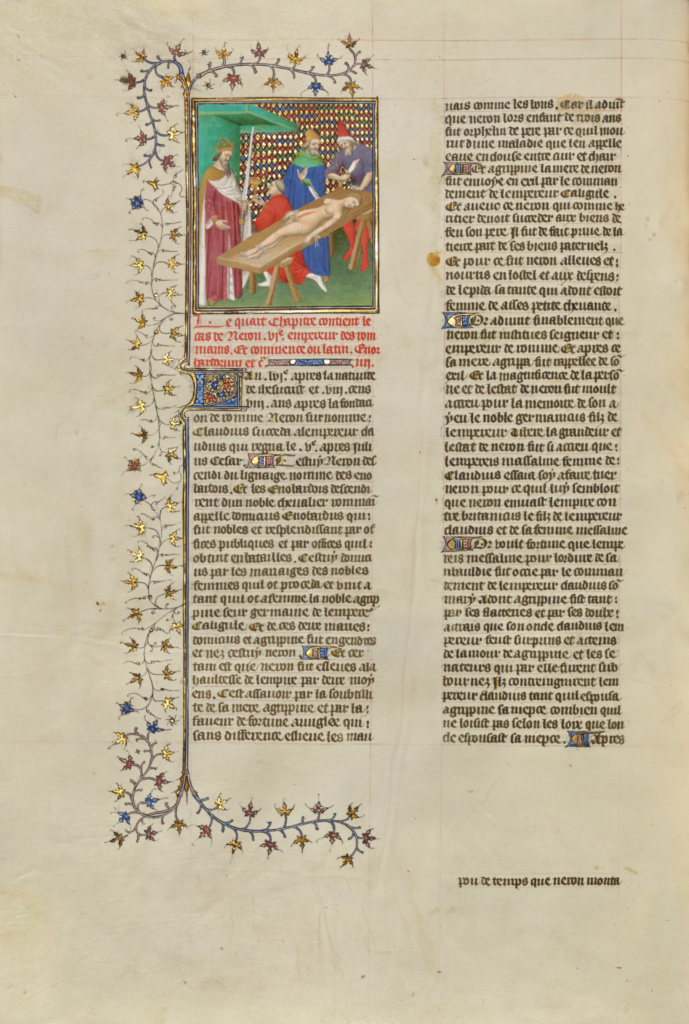 Le quart Chapitre contient le
cas de Neron .vi.e empereur des rom
mains. Et commence ou latin. Enor
bardorum et c. .iiii.
Lan .lvi.e apres la nativite
de ihesucrist et .viii. cens
.viii. ans apres la fondaci
on de romme Neron surnomme :
Claudius succeda alempereur clau
dius qui regna le .v.e apres juli
us Cesar. Cestuy Neron des
cendi du lignaige nomme des eno
bardois. Et les Enobardois descendi
rent dun noble chevalier rommain
appelle domicius Enobardus qui :
fut nobles et resplendissant par of
fices publiques et par offices quil :
obtint en batailles. Cestuy domici
us par les mariaiges des nobles
femmes quil ot proceda et vint a
tant quil ot a femme la noble agrip
pine seur germaine de lempereur
Caligule. Et de ces deux maries :
domicius et agrippine fut engendres
et nez cestuy neron Et cer
tain est que neron fut esleves a la
haultesse de lempire par deux moy
ens. Cest assavoir par la soubtilli
te de sa mere agrippine. et par la :
faveur de fortune avuglee qui :
sans difference eslieve les mau
vais comme les bons. Car il advint
que neron lors enfant de trois ans
fut orphelin de pere par ce quil mou
rut dune maladie que len appelle
eaue endouse entre cuir et chair
Et agrippine la mere de neron
fut envoye en exil par le comman
dement de lempereur Caligule.
Et avecc ce neron qui comme he
ritier devoit succeder aux biens de
feu son pere. Il fut de fait prive de la
tierce part de ses biens paternelz.
Et pour ce fut neron alleues et :
nourris en lostel et aux despens :
de lepida sa tante qui adont estoit
femme de asses petite chevance.
Or advint finablement que
neron fut institues seigneur et :
empereur de romme. Et apres ce
sa mere. agrippa fut rappellee de so
exil. Et la magnificence de la perso
ne et de lestat de neron fut moult
accreu pour la memoire de son a
yeul le noble germanicus filz de
lempereur Tibere la grandeur et
lestat de neron fut si accreu que :
lempereis massaline femme de :
Claudius essaia soy a faire tuer
neron pour ce quil luy sembloit
que neron enviast lempire con
tre britanicus le filz de lempereur
claudius et de sa femme messaline
Or voult fortune que lempe
reis messaline pour lordure de sa
ribauldie fut occie par le comman
dement de lempereur claudius so
mary. Adont agrippine fist tant :
par ses flatteries et par ses doulx :
actrais que son oncle claudius lem
pereur feust surprins et actains
de lamour de agrippine. et les se
nateurs qui par elle furent sub
tournez Ilz contraingnirent lem
pereur claudius tant quil espousa
agrippine sa niepce combien quil
ne loisist pas selon les loix que lon
cle espousast sa niepce. Apres
pou de temps que neron monta